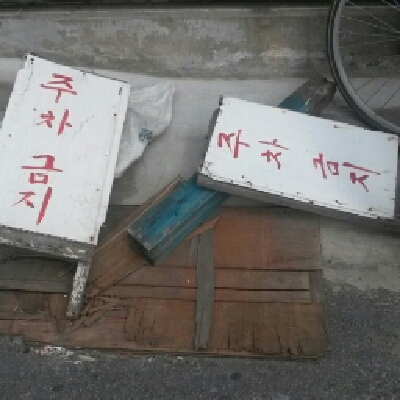 주차
금지
주차 금지